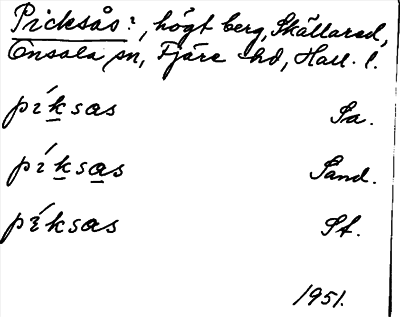 Picksås:, högt berg, Skällared,
Onsala sn, Fjäre hd, Hall. l.
pi´ksas Sa.
pi´ksas Sand.
pɛ´ksas St.
1951.